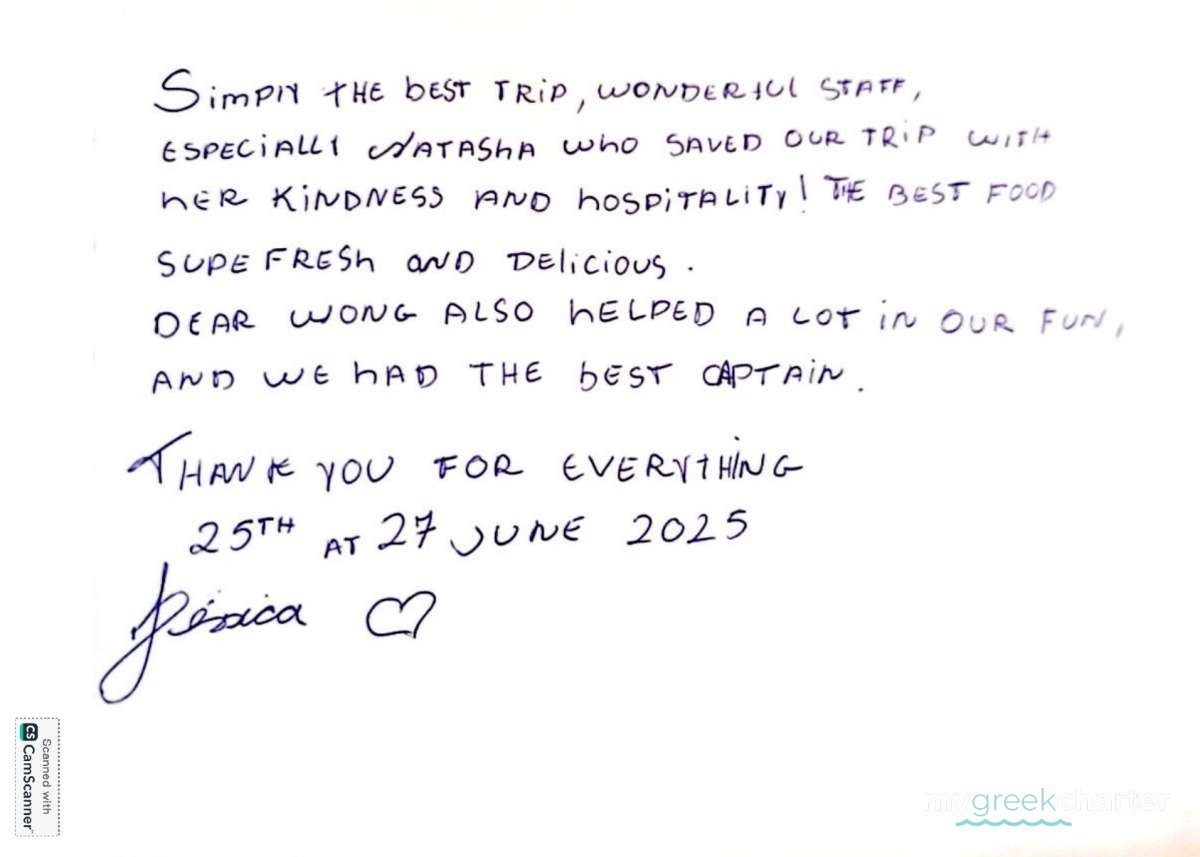 Simply THE best TRIP, WONDERfUl STAFF,
ESPECIALLY NATASHA who SAVED OUR TRIP WITH
HER KINDNESS AND hOSPITALITY! THE BEST FOOD
SUPE FRESh AND DElicious.
DEAR WONG ALSO hELPED A LOT in OUR FUN,
AND WE hAD THE bEST CAPTAIN.
THANK YOU FOR EVERYTHING
25TH AT 27 JUNE 2025
Jéssica
Scanned with
CS CamScanner
mygreekcharter